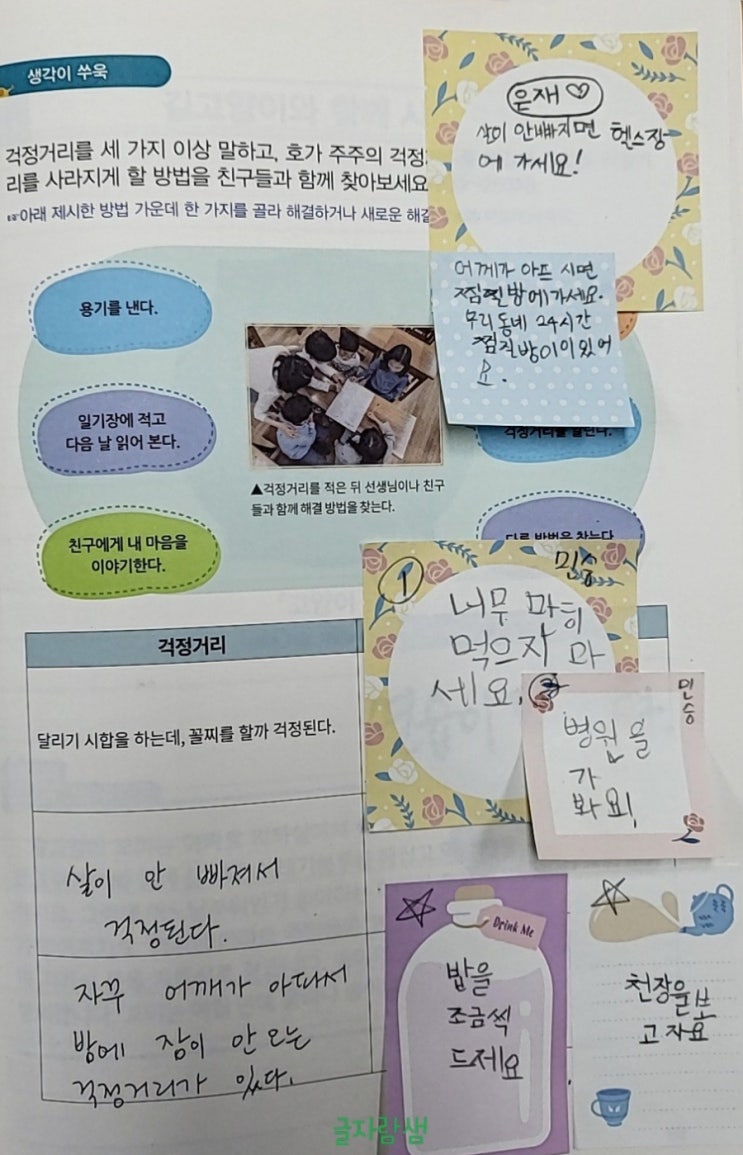 생각이 쑤욱
걱정거리를 세 가지 이상 말하고, 호가 주주의 걱정
리를 사라지게 할 방법을 친구들과 함께 찾아보세요
☞아래 제시한 방법 가운데 한 가지를 골라 해결하거나 새로운 해결
은재 ♡
살이 안빠지면 헬스장
에 가세요!
어께가 아프 시면
찜질방에가세요.
우리동네 24시간
찜질방이이있어
요.
용기를 낸다.
일기장에 적고
다음 날 읽어 본다.
친구에게 내 마음을
이야기한다.
▲걱정거리를 적은 뒤 선생님이나 친구
들과 함께 해결 방법을 찾는다.
걱정거리를 날린다.
다른 방법을 찾는다
① 민승
너무 마히
먹으지 마
세요.
민승
병원을
가
봐요!
걱정거리
달리기 시합을 하는데, 꼴찌를 할까 걱정된다.
살이 안 빠져서
걱정된다.
자꾸 어깨가 아파서
밤에 잠이 안 오는
걱정거리가 있다.
Drink Me
밥을
조금씩
드제요
천장을 보
고 자요
글자람쌤